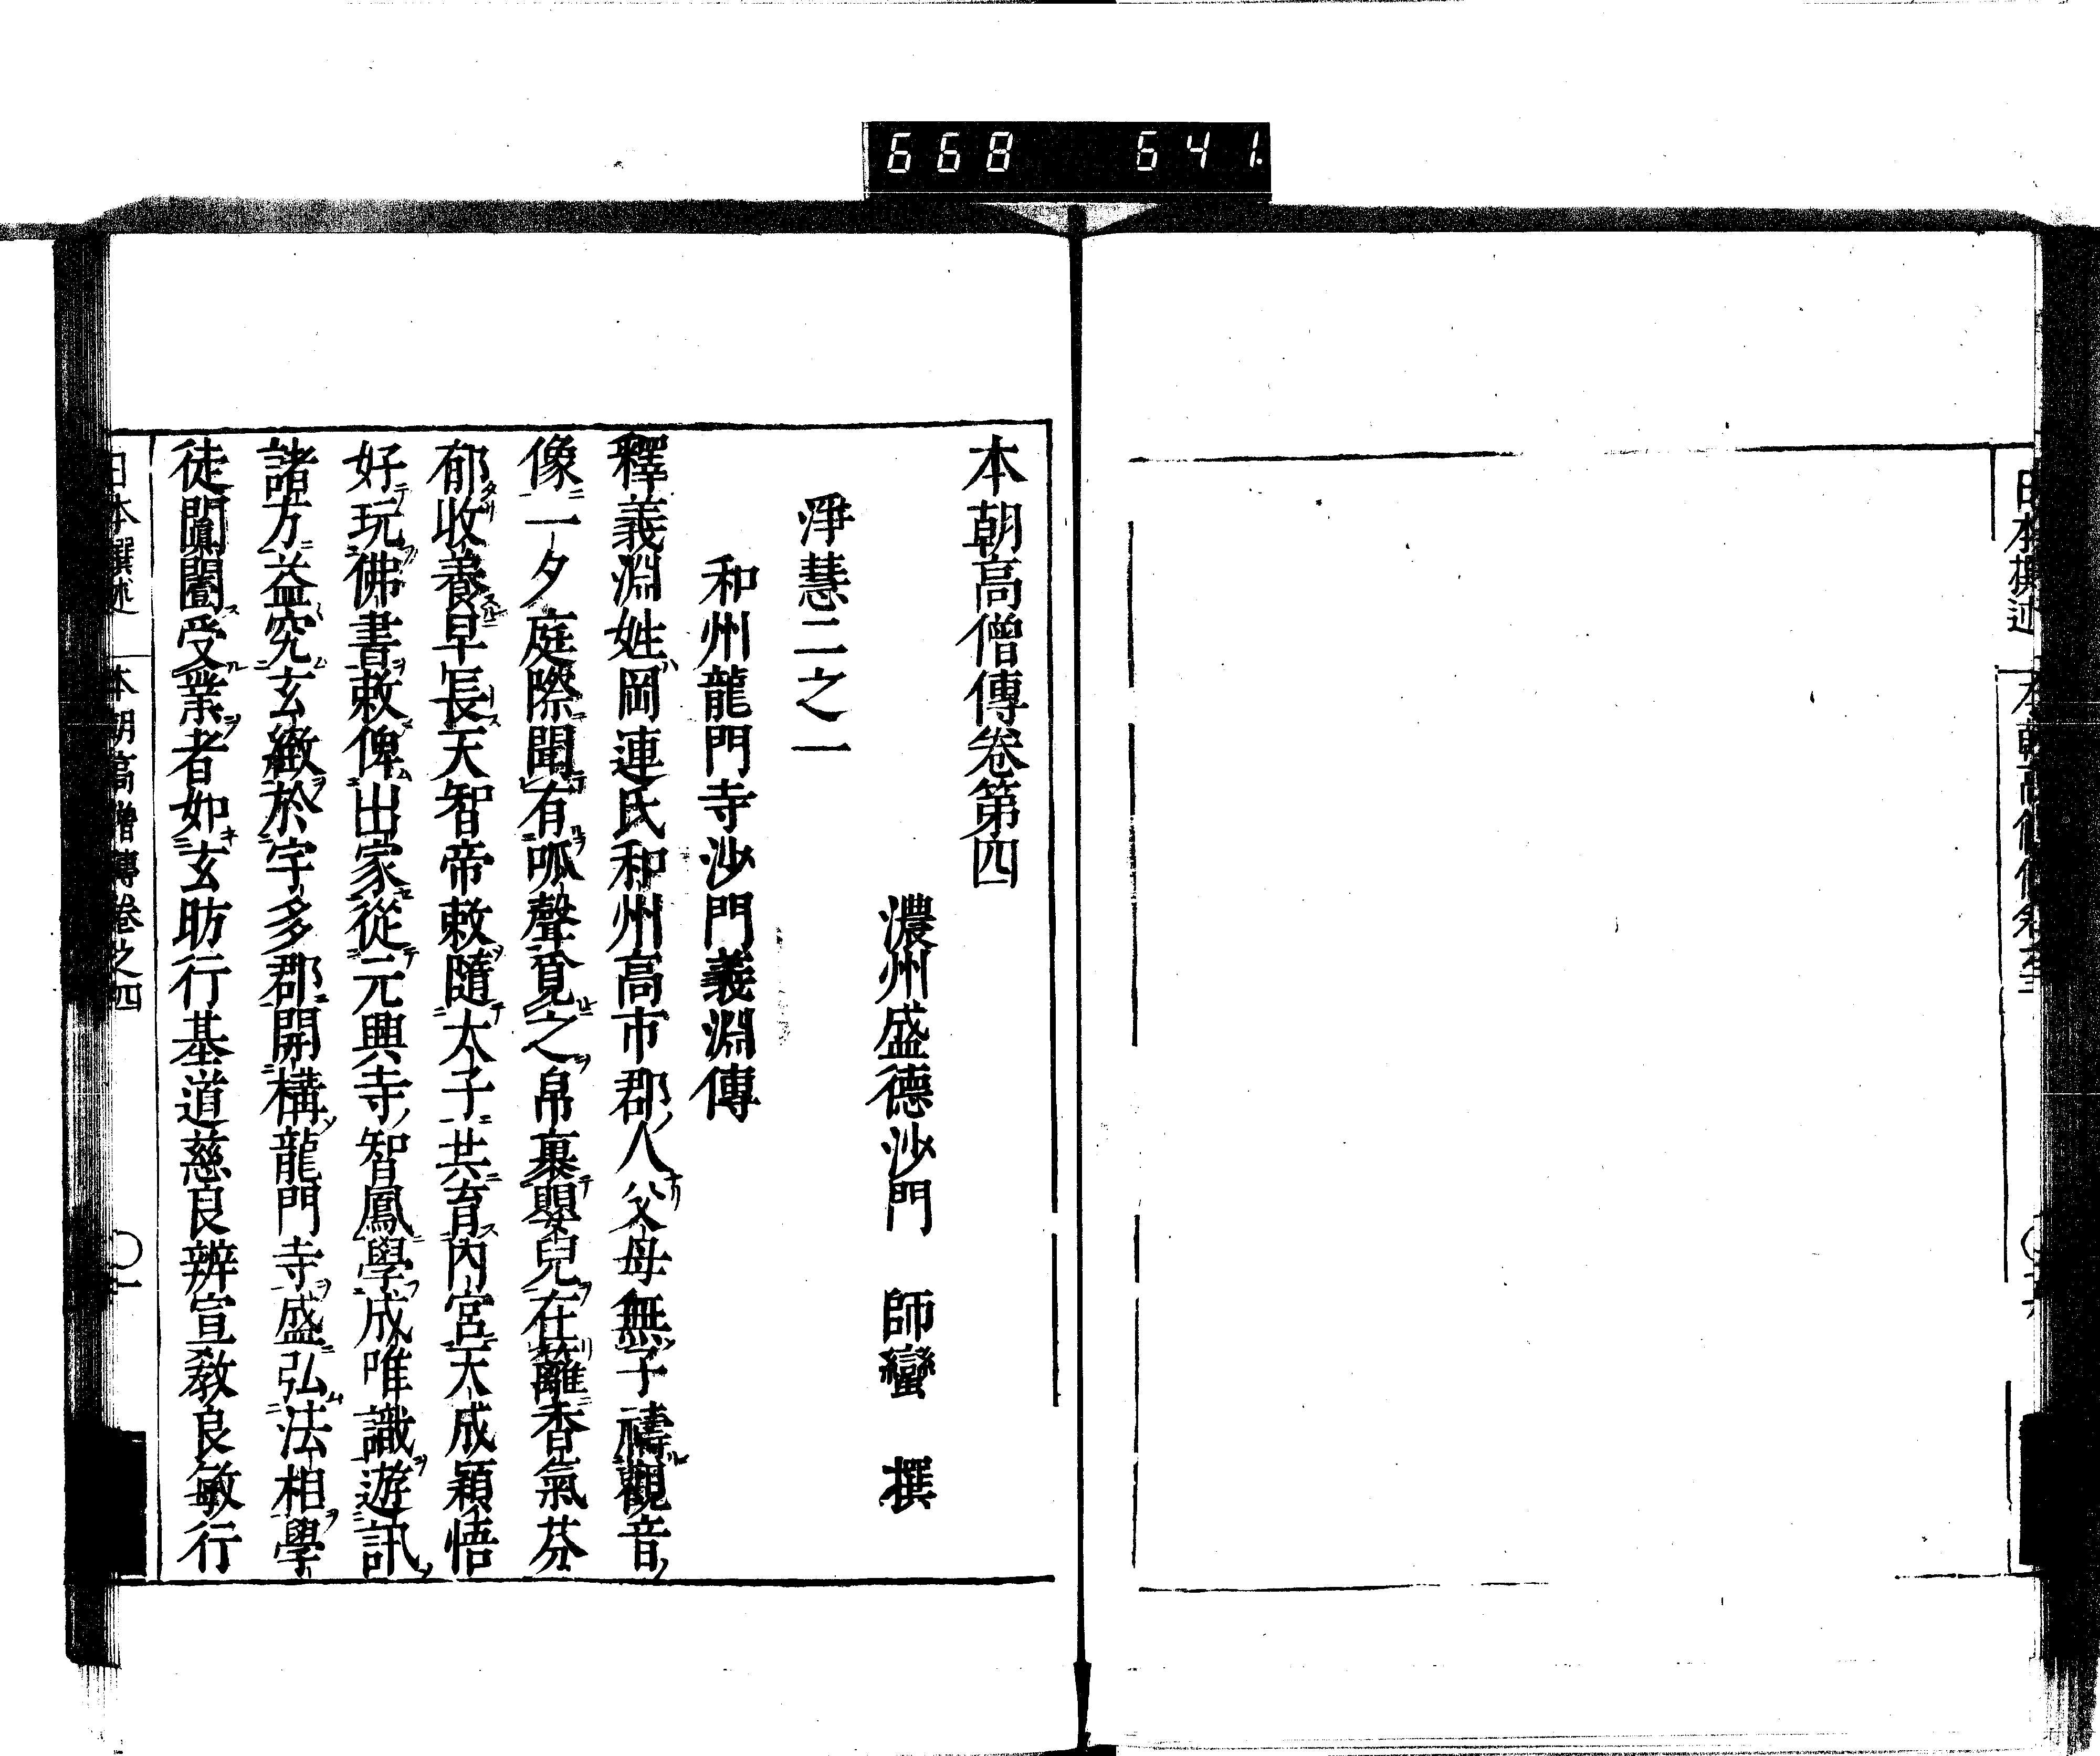 668 641.
本朝高僧傳卷第四
濃州盛德沙門 師蠻 撰
淨慧二之一
和州龍門寺沙門義淵傳
釋義淵姓岡連氏和州高市郡人父母無子禱觀音
像一夕庭際聞有呱聲覓之帛裹嬰兒在籬香氣芬
郁收養早長天智帝敕隨太子共育內宮天成穎悟
好玩佛書敕俾出家從元興寺智鳳學成唯識遊訊
諸方益究玄緻於宇多郡開構龍門寺盛弘法相學
徒闐闠受業者如玄昉行基道慈良辨宣教良敏行
日本撰述 本朝高僧傳卷之四 〇一